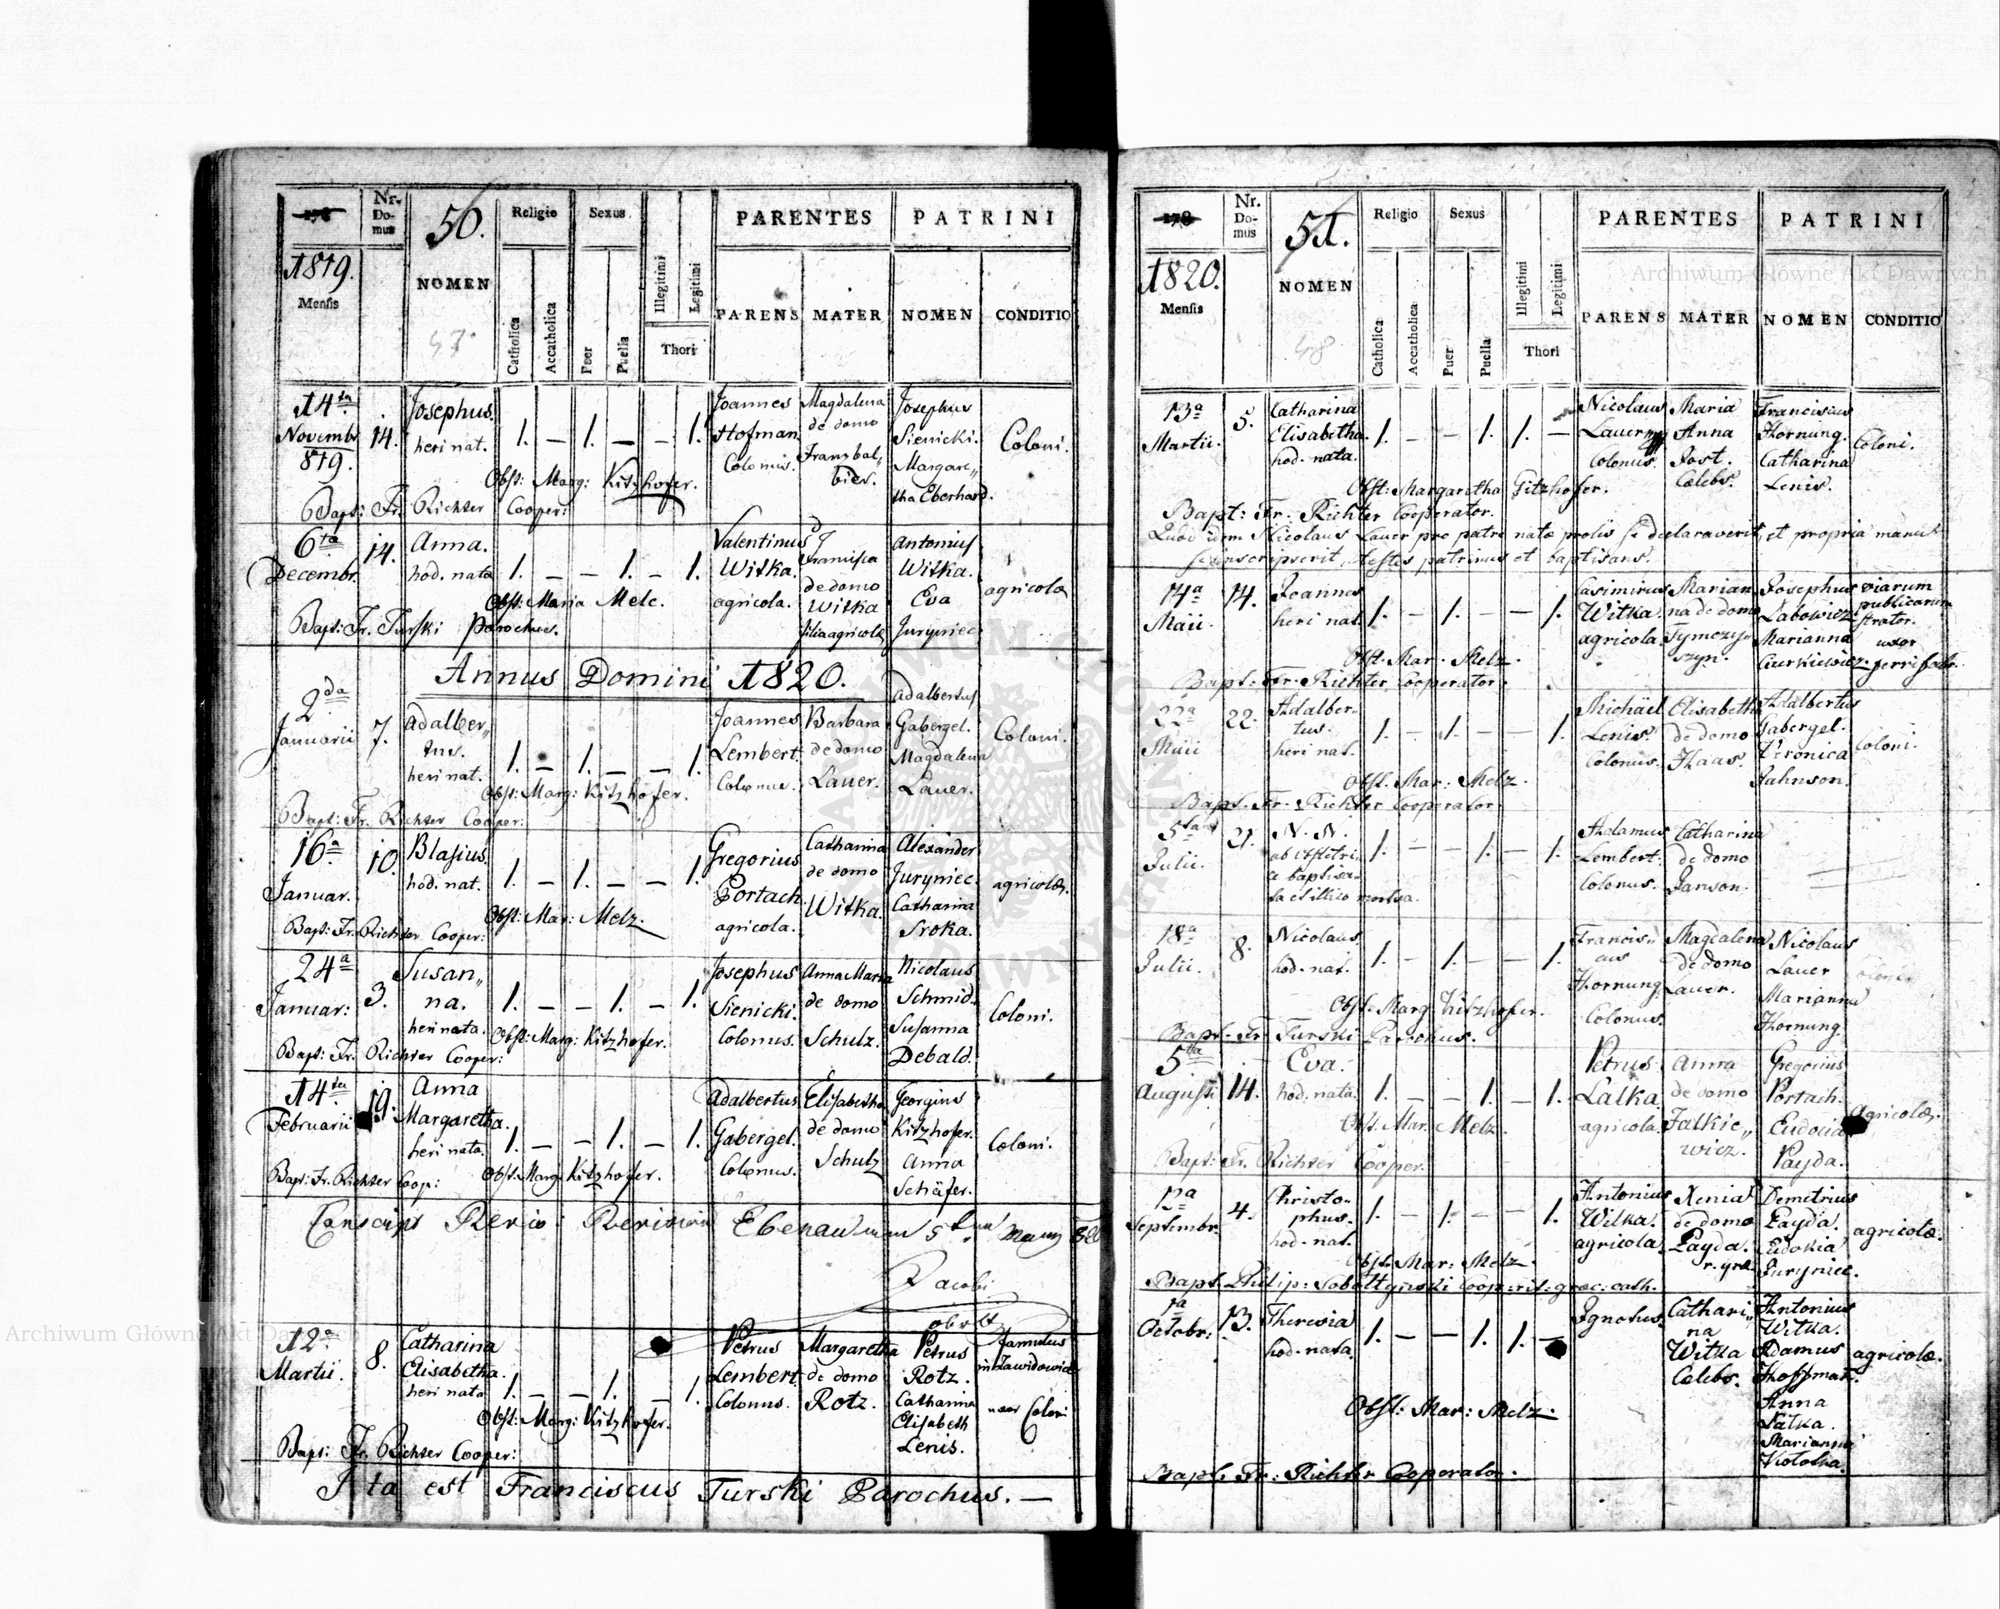 178
Nr. Domus
50.
Religio
Sexus
PARENTES
PATRINI
1819.
Mensis
NOMEN
Catholica
Accatholica
Puer
Puella
Illegitimi
Legitimi
Thori
PARENS
MATER
NOMEN
CONDITIO
14ta Novembr 819.
14.
Josephus.
heri nat.
1. – 1. – – 1.
Joannes Hofman Colonus.
Magdalena de domo
Josephus Sienicki.
Margaretha Eberhard.
Coloni.
Obst: Marg: Kitzhofer.
Bapt: Fr. Richter Cooper:
6ta Decembr.
14.
Anna.
hod. nata
1. – – 1. – 1.
Valentinus Witka. agricola.
Francisca de domo Witka filia agricolæ
Antonius Witka.
Eva Juryniec
agricolæ
Obst: Maria Melc.
Bapt: Fr. Turski Parochus.
Annus Domini 1820.
2da Januarii
7.
Adalber„
tus.
heri nat.
1. – 1. – – 1.
Joannes Lembert. Colonus.
Barbara de domo Lauer.
Adalbertus Gabergel.
Magdalena Lauer.
Coloni.
Obst: Marg: Kitzhofer.
Bapt: Fr. Richter Cooper:
16a Januar.
10.
Blasius.
hod. nat.
1. – 1. – – 1.
Gregorius Portach agricola.
Catharina de domo Witka.
Alexander Juryniec.
Catharina Sroka.
agricolæ.
Obst: Mar: Melz.
Bapt: Fr. Richter Cooper:
24a Januar:
3.
Susan„
na.
heri nata.
1. – – 1. – 1.
Josephus Sienicki. Colonus.
Anna Maria de domo Schulz.
Nicolaus Schmid.
Susanna Debald.
Coloni.
Obst: Marg: Kitzhofer.
Bapt: Fr. Richter Cooper:
14ta Februarii
19.
Anna
Margaretha.
heri nata.
1. – – 1. – 1.
Adalbertus Gabergel. Colonus.
Elisabetha de domo Schulz
Georgius Kitzhofer.
Anna Schäfer.
Coloni.
Obst: Marg: Kitzhofer.
Bapt: Fr. Richter Coop:
Ebenau
12a Martii.
8.
Catharina
Elisabetha.
heri nata
1. – – 1. – 1.
Petrus Lembert Colonus.
Margaretha de domo Rotz.
Petrus Rotz.
Catharina Elisabeth Lenis.
Famulus
uxor Coloni
Obst: Marg: Kitzhofer.
Bapt: Fr. Richter Cooper:
Ita est Franciscus Turski Parochus. –
178
Nr. Domus
51.
Religio
Sexus
PARENTES
PATRINI
1820.
Mensis
NOMEN
48
Catholica
Accatholica
Puer
Puella
Illegitimi
Legitimi
Thori
PARENS
MATER
NOMEN
CONDITIO
13a Martii.
5.
Catharina
Elisabetha.
hod. nata.
1. – – 1. 1. –
Nicolaus Lauer Colonus.
Maria Anna Jost. Celebs.
Franciscus Hornung.
Catharina Lenis.
Coloni.
Obst: Margaretha Gitzhofer.
Bapt: Fr. Richter Cooperator.
Quod idem Nicolaus Lauer pro patre natæ prolis se declaraverit, et propria manu
se inscripserit, testes patrinus et baptisans.
14a Maii.
14.
Joannes
heri nat.
1. – 1. – – 1.
Casimirus Witka. agricola.
Marian„
na de domo
Josephus Labowicz
Marianna Gurkiewicz
viarum publicarum strator.
uxor
Obst: Mar: Melz.
Bapt: Fr. Richter Cooperator.
22a Maii
22.
Adalber„
tus.
heri nat.
1. – 1. – – 1.
Michäel Lenis Colonus.
Elisabetha de domo Haas.
Adalbertus Gabergel.
Veronica Jahnson.
Coloni.
Obst: Mar: Melz.
Bapt: Fr. Richter Cooperator
5ta Julii.
21.
N. N.
ab obstetri„
ce baptisa„
ta et illico mortua.
1. – – 1. – 1.
Adamus Lembert. Colonus.
Catharina de domo Janson.
18a Julii.
8.
Nicolaus.
hod. nat.
1. – 1. – – 1.
Francis„
cus Hornung Colonus.
Magdalena de domo Lauer.
Nicolaus Lauer
Marianna Hornung.
Coloni
Obst: Marg: Kitzhofer.
Bapt: Fr. Turski Parochus.
5ta Augusti
14.
Eva.
hod. nata.
1. – – 1. – 1.
Petrus Lalka. agricola.
Anna de domo Falkie„
wicz.
Gregorius Portach.
Eudocia Payda.
agricolæ.
Obst: Mar: Melz.
Bapt: Fr. Richter Cooper.
12a Septembr.
4.
Christo„
phus.
hod. nat.
1. – 1. – – 1.
Antonius Witka. agricola
Xenia de domo Payda.
Demetrius Payda.
Eudokia Juryniec.
agricolæ.
Obst: Mar: Melz.
1a Octobr:
13.
Theresia
hod. nata.
1. – – 1. 1. –
Ignotus.
Cathari„
na Witka Celebs.
Antonius Witka.
Adamus Hoffman.
Anna Latka.
Marianna
agricolæ.
Obst: Mar: Melz.
Bapt: Fr: Richter Cooperator.
Archiwum Główne Akt Dawnych
Archiwum Główne Akt Dawnych